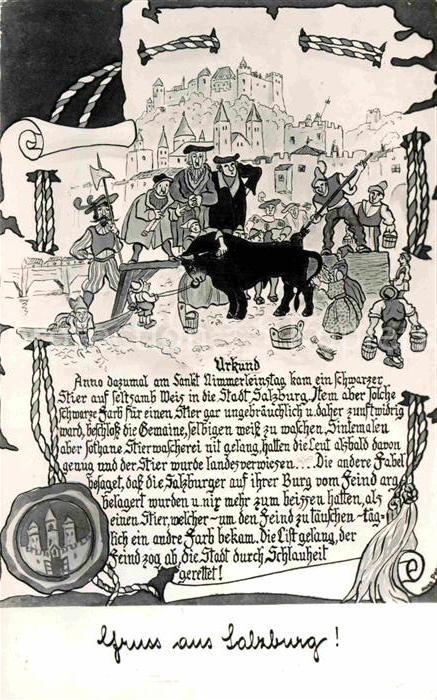 Urkund
Anno dazumal am Sankt Nimmerleinstag, kam ein schwarzer
Stier auf seltsamb Weis in die Stadt Salzburg. Item aber solche
schwarze Farb für einen Stier gar ungebräuchlich u. daher zunftwidrig
ward, beschloß die Gemaine, selbigen weiß zu waschen. Sintemalen
aber sothane Stierwascherei nit gelang, hatten die Leut alsbald davon
genug und der Stier wurde landesverwiesen.... Die andere Fabel
besaget, daß die Salzburger auf ihrer Burg vom Feind arg
belagert wurden u. nix mehr zum beissen hatten, als
einen Stier, welcher - um den Feind zu täuschen - täg-
lich ein andre Farb bekam. Die List gelang, der
Feind zog ab, die Stadt durch Schlauheit
gerettet!
Gruss aus Salzburg!